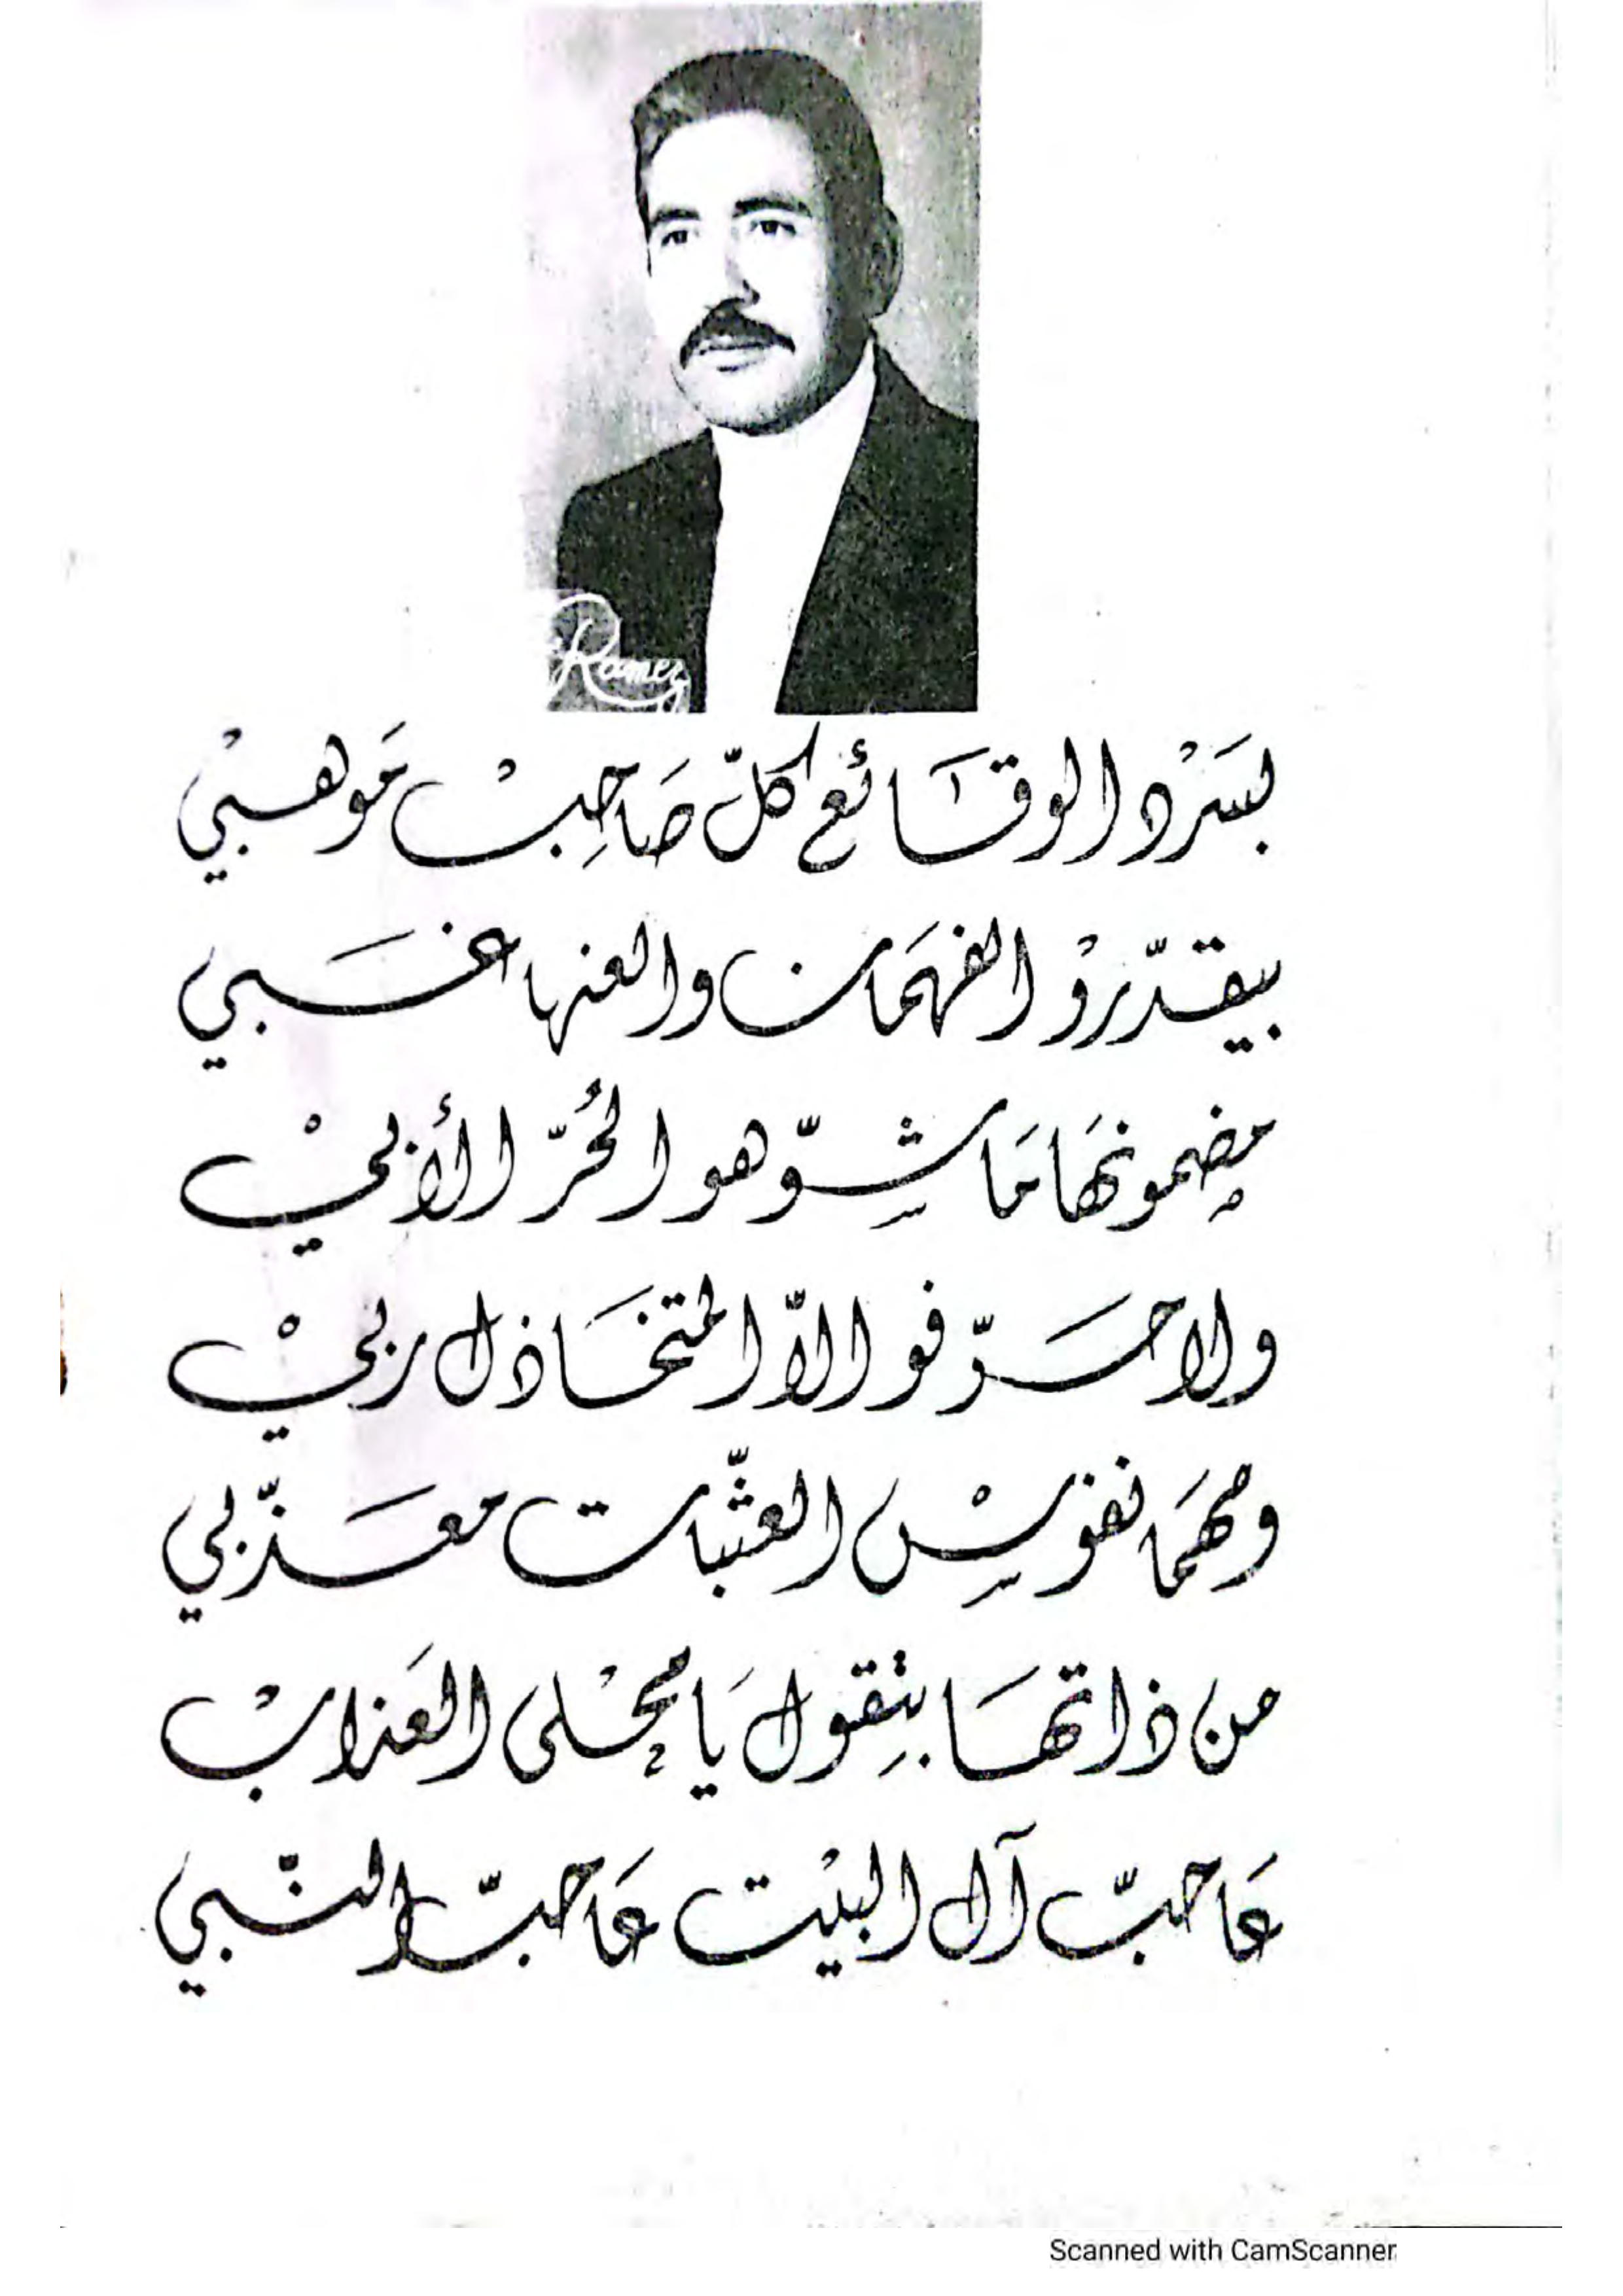 Ramez
بسَرْد الوقَائع كلّ صَاحِبْ مَوهبيْ
بيقدّروْ الفهمَان والعنها غَبي
مضمونهَا مَا شِوّهو الحُرّ الأبيْ
ولا حَرّفو الاّ المتخَاذل ربيْ
ومهمَا نفوسِْ العثّبات معَذّبي
من ذاتهَا بتِقول يَا محْلى العَذابْ
عَا حبّ آل البيْت عَا حبّ النّبي
Scanned with CamScanner